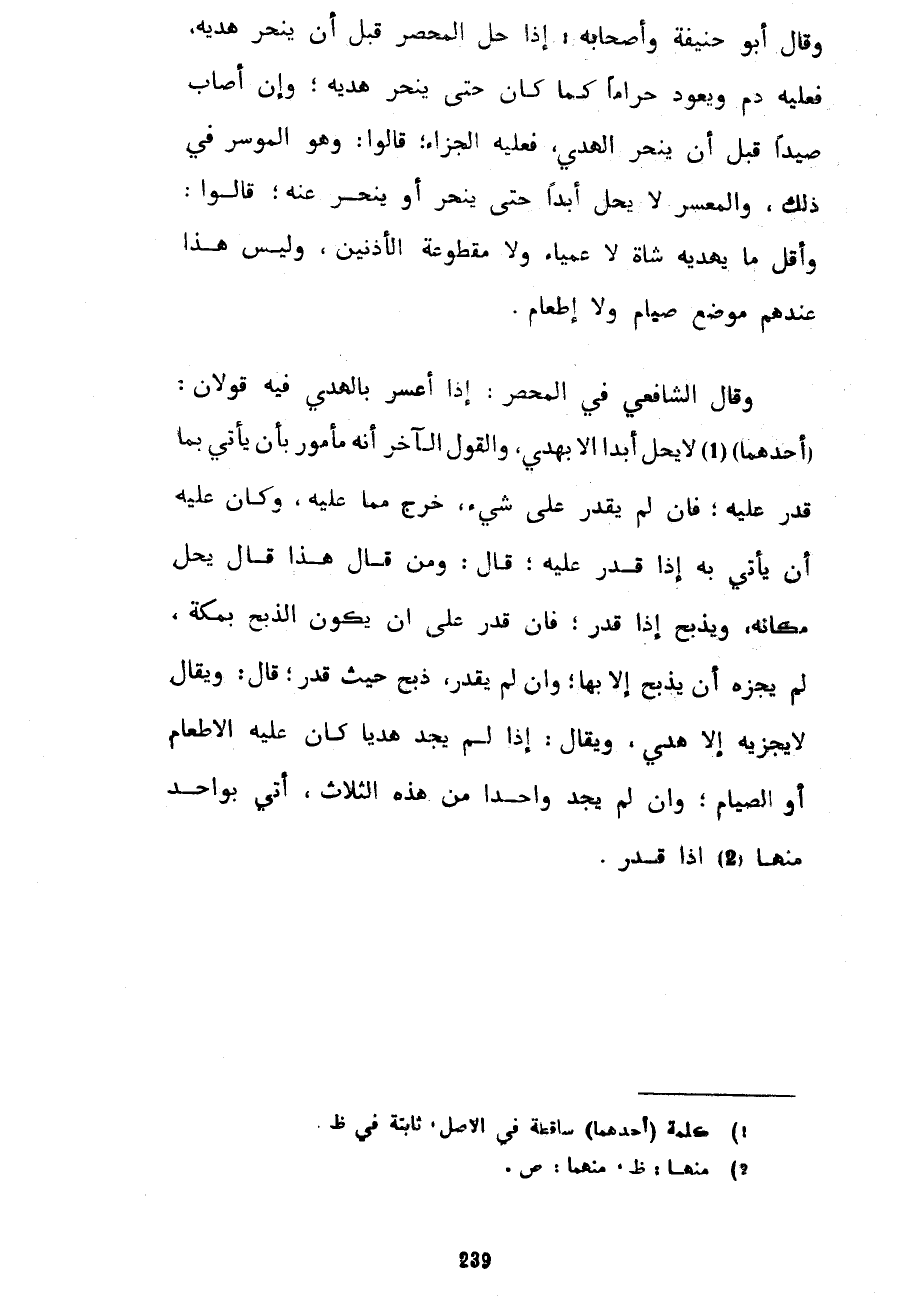 وقال أبو حنيفة وأصحابه : إذا حل المحصر قبل أن ينحر هديه،
فعليه دم ويعود حراماً كما كان حتى ينحر هديه ؛ وإن أصاب
صيداً قبل أن ينحر الهدي، فعليه الجزاء؛ قالوا: وهو الموسر في
ذلك ، والمعسر لا يحل أبداً حتى ينحر أو ينحر عنه ؛ قالوا :
وأقل ما يهديه شاة لا عمياء ولا مقطوعة الأذنين ، وليس هذا
عندهم موضع صيام ولا إطعام .
وقال الشافعي في المحصر : إذا أعسر بالهدي فيه قولان :
(أحدهما) (1) لايحل أبدا الا بهدي، والقول الآخر أنه مأمور بأن يأتي بما
قدر عليه ؛ فان لم يقدر على شيء، خرج مما عليه ، وكان عليه
أن يأتي به إذا قدر عليه ؛ قال : ومن قال هذا قال يحل
مكانه، ويذبح إذا قدر ؛ فان قدر على ان يكون الذبح بمكة ،
لم يجزه أن يذبح إلا بها؛ وان لم يقدر، ذبح حيث قدر ؛ قال : ويقال
لايجزيه إلا هدي ، ويقال : إذا لم يجد هديا كان عليه الاطعام
أو الصيام ؛ وان لم يجد واحدا من هذه الثلاث ، أتي بواحد
منها (2) اذا قدر .
1) كلمة (أحدهما) ساقطة في الاصل، ثابتة في ظ .
2) منها : ظ ، منهما : ص .
239